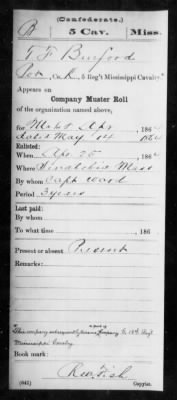 (Confederate.)
B 5 Cav. Miss.
T F Burford
Co. K, 5 Reg't Mississippi Cavalry.*
Appears on
Company Muster Roll
of the organization named above,
for Mch & Apr, 1864
dated May 1st 1864
Enlisted:
When Apr 25, 1864
Where Miss
By whom Capt Ward
Period 3 years
Last paid:
By whom
To what time , 186
Present or absent Present
Remarks:
*This company subsequently became a part of Company G, 18th Reg't
Mississippi Cavalry.
Book mark:
Geo. Fish
(642) Copyist.